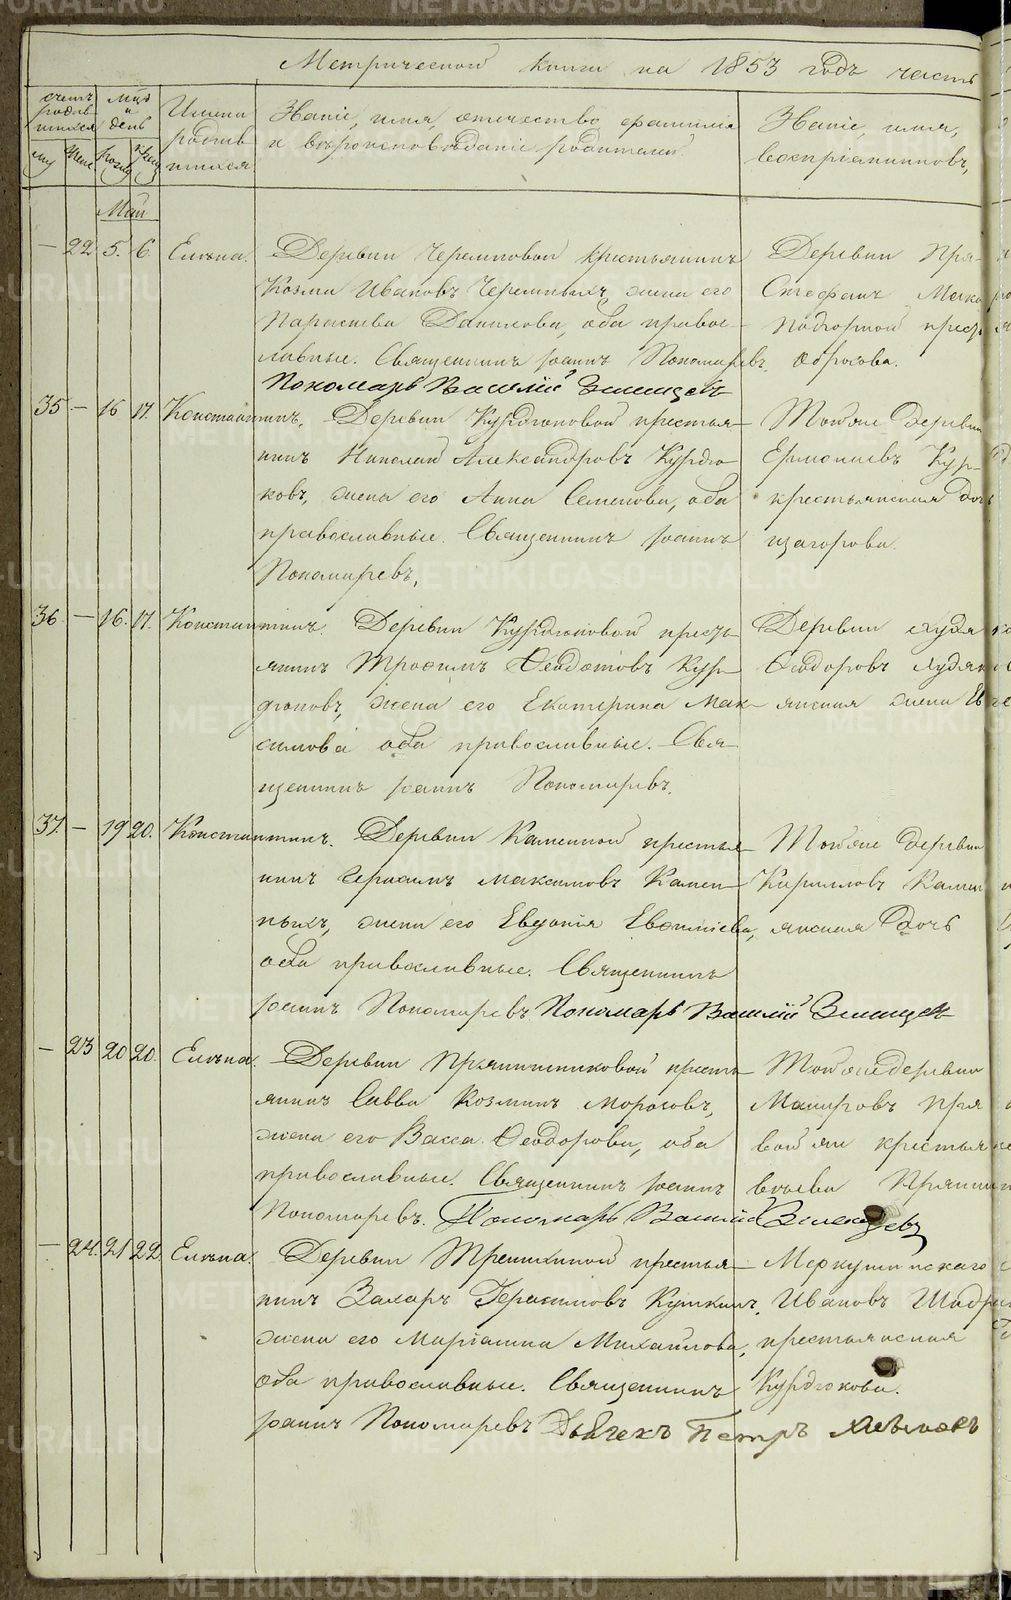 Метрической книги на 1853 годъ часть
счетъ родив шихся
муж. жен.
мѣс. и день
рожд. крещ.
Имена родив шихся
Званіе, имя, отечество фамилія
и вѣроисповѣданіе родителей.
Званіе, имя,
воспріемниковъ,
Май
— 22. 5. 6. Елена. Деревни Черемновой крестьянинъ
Козма Ивановъ Черемныхъ, жена его
Параскева Данилова, оба правос-
лавные. Священникъ Іоаннъ Пономаревъ.
Пономарь Василій
Деревни Пря-
Стефанъ
Подгорной крестья
Абросова.
35. — 16 17. Константинъ. Деревни Курдюковой крестья-
нинъ Николай Александровъ Курдю
ковъ, жена его Анна Семенова, оба
православные. Священникъ Іоаннъ
Пономаревъ.
Той же деревни
Ермолаевъ Кур-
крестьянская дочь
щагорова.
36. — 16. 17. Константинъ. Деревни Курдюковой крест-
янинъ Трофимъ Ѳеодотовъ Кур
дюковъ, жена его Екатерина Мак-
симова оба православные. Свя-
щенникъ Іоаннъ Пономаревъ.
Деревни Худя
Ѳеодоровъ Худя
янская жена Ев
37. — 19 20. Константинъ. Деревни Каменной крестья-
нинъ Герасимъ Максимовъ Камен-
ныхъ, жена его Евдокія Евфиміева,
оба православные. Священникъ
Іоаннъ Пономаревъ Пономарь Василій
Той же деревни
Кирилловъ Камен
янская дочь
— 23 20 20. Елена. Деревни Прянишниковой кресть
янинъ Савва Козминъ Моросовъ,
жена его Васса Ѳеодорова, оба
православные. Священникъ Іоаннъ
Пономаревъ. Пономарь Василій
Той же деревни
Макаровъ Пря
вой же крестья
вльева Пряниш
— 24. 21 22. Елена. Деревни Трешкиной крестья-
нинъ Захаръ Герасимовъ Кушкинъ,
жена его Маріамна Михайлова,
оба православные. Священникъ
Іоаннъ Пономаревъ Дьячекъ Петръ
Меркушинскаго
Ивановъ Шадри
крестьянская
Курдюкова.
METRIKI.GASO-URAL.RU